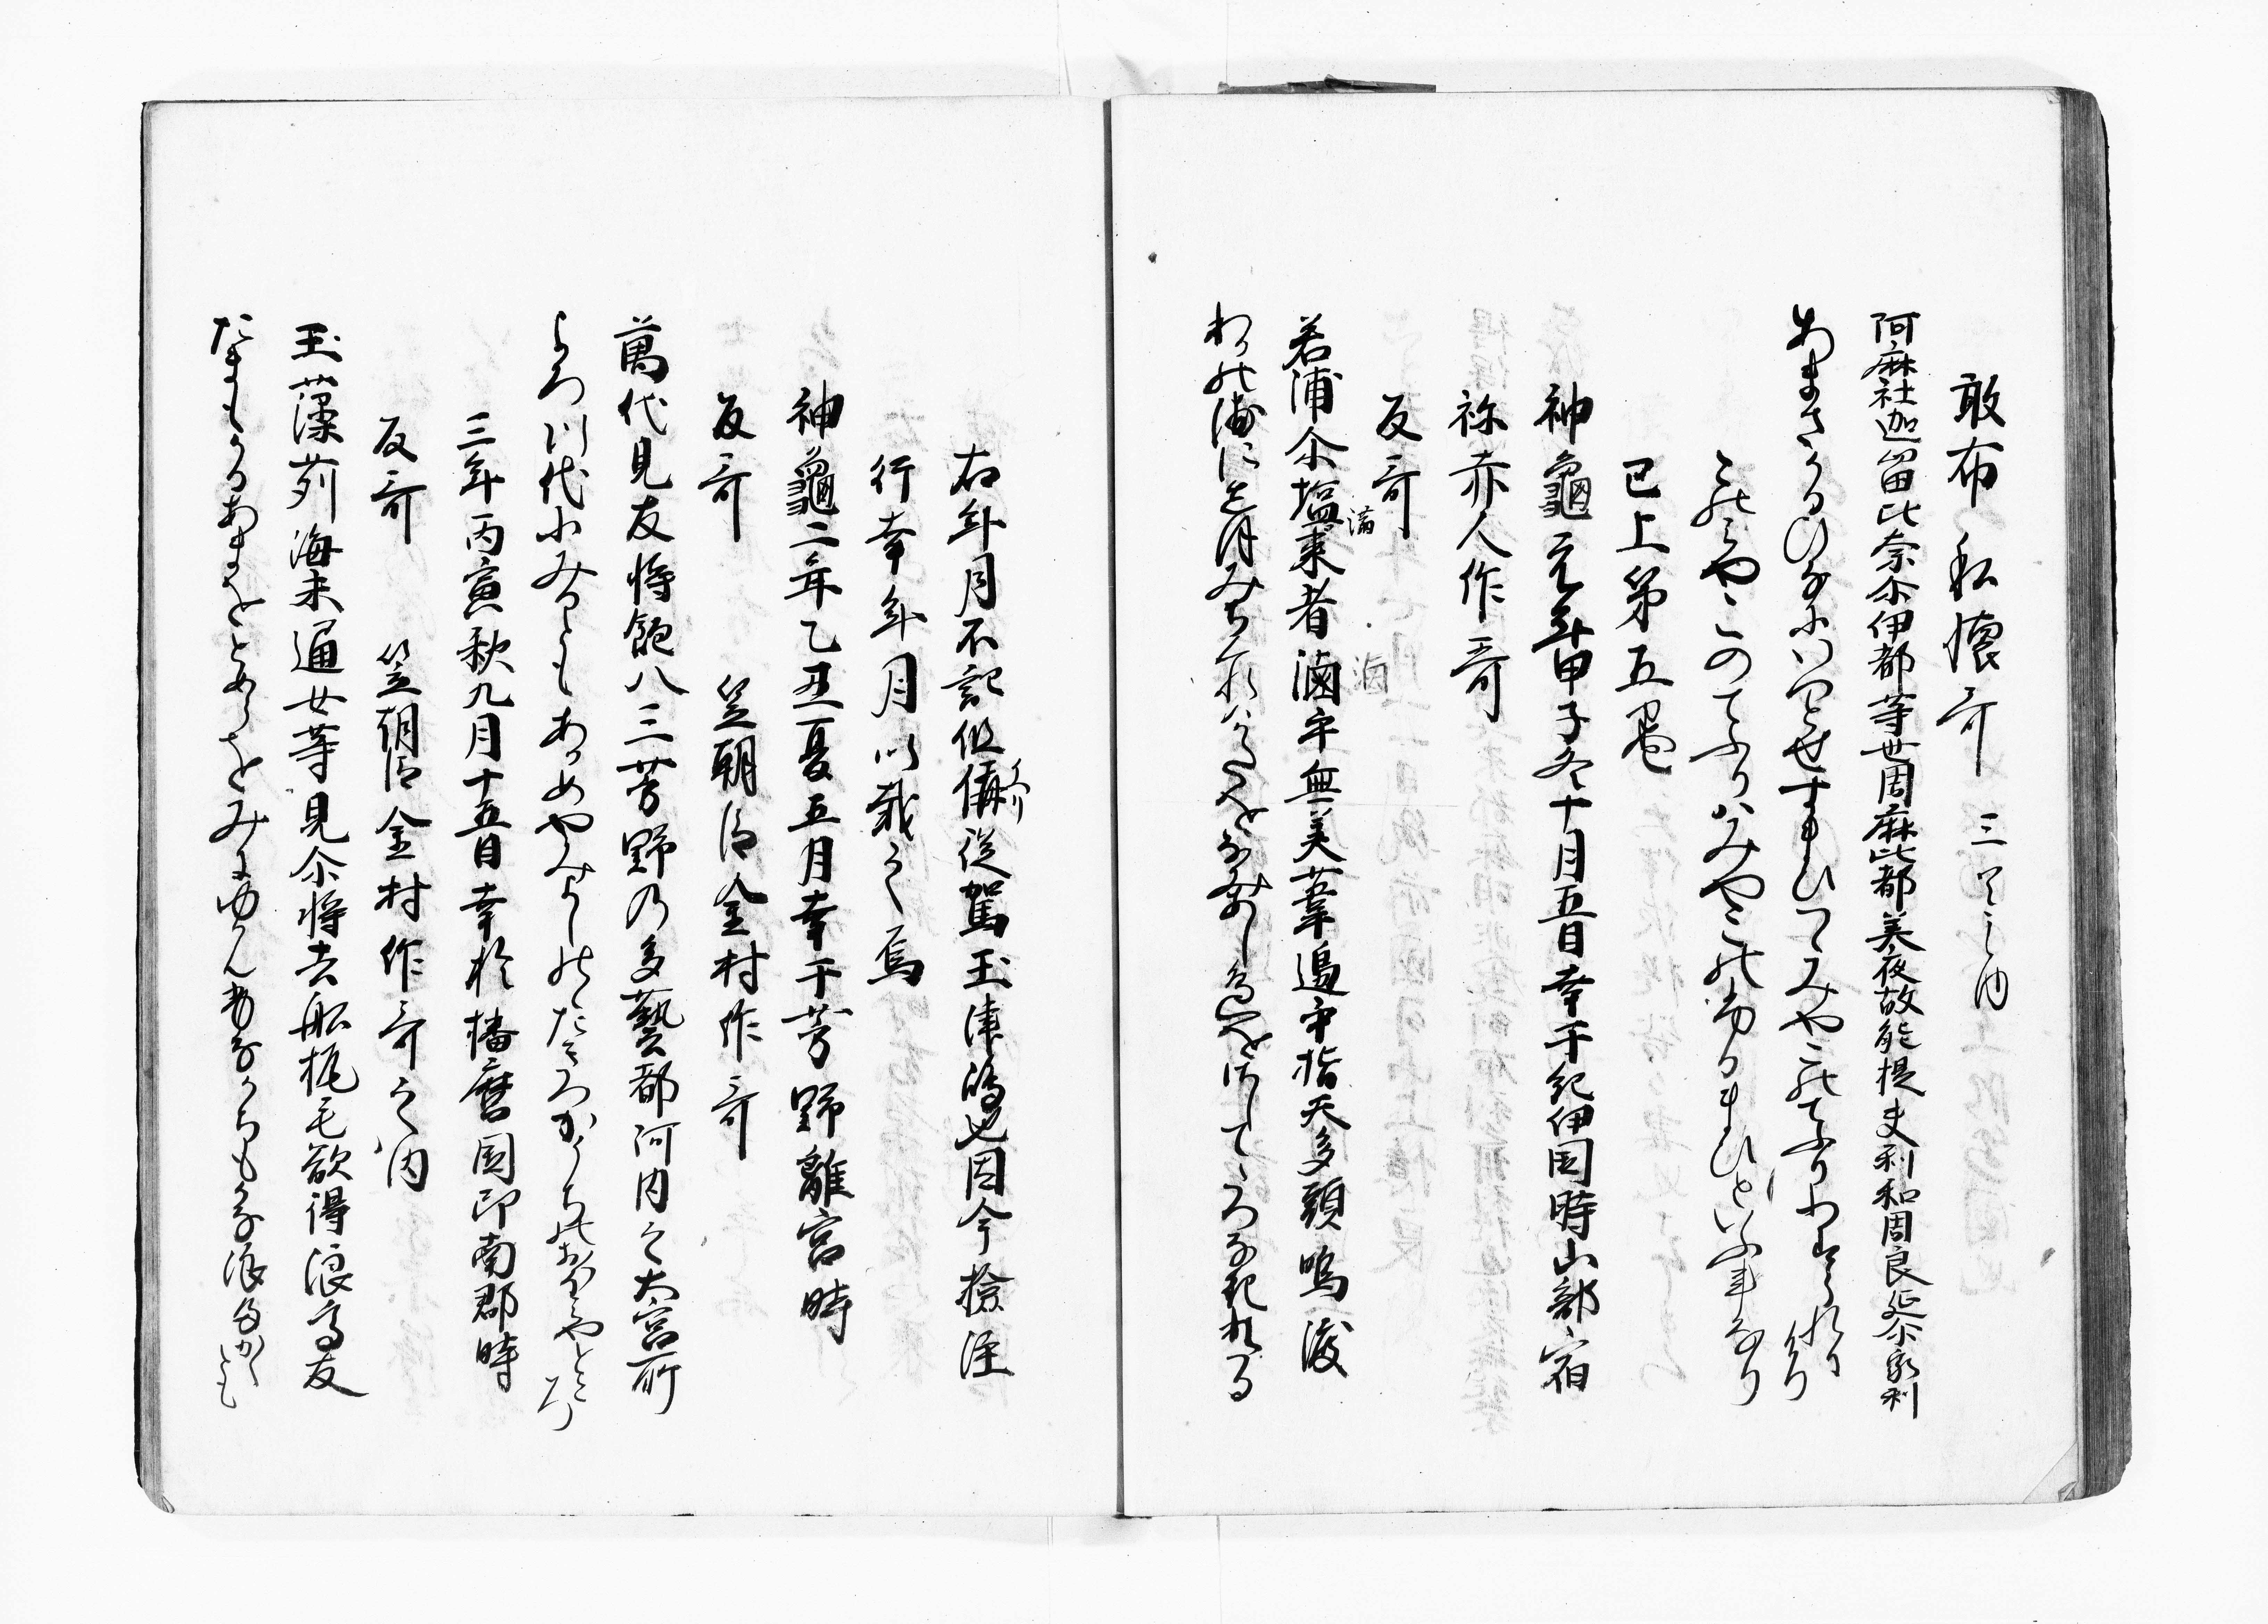 敢布私懐哥 三首之内
阿麻社迦留比奈尓伊都等世周麻比都美夜故能提夫利和周良延尓家利
あまさかるひなにいつとせすまひつゝみやこのてふりわすられにけり
このみやこのてふりハみやこのふりまひといふ事なり
已上第五巻
神龜元年甲子冬十月五日幸于紀伊国時山部宿
祢赤人作哥
反哥
若浦尓塩来者滷乎無美葦邊乎指天多頭鳴渡
満
滷
わかの浦に志ほみちくれハかたをなみあしへをさしてたつなきわたる
右年月不記但偁従駕玉津嶋也因今撿注
行幸年月以載之焉
神龜二年乙丑夏五月幸于芳野離宮時
反哥 笠朝臣金村作哥
萬代見友将飽八三芳野乃多藝都河内之大宮所
よろつ代にみるともあかめやみよしのゝたきつかうちのおほみやところ
三年丙寅秋九月十五日幸於播磨国印南郡時
反哥 笠朝臣金村作哥之内
玉藻苅海未通女等見尓将去船梶毛欲得浪高友
たまもかるあまをとめらをみにゆかん舟かちもかな浪たかくとも